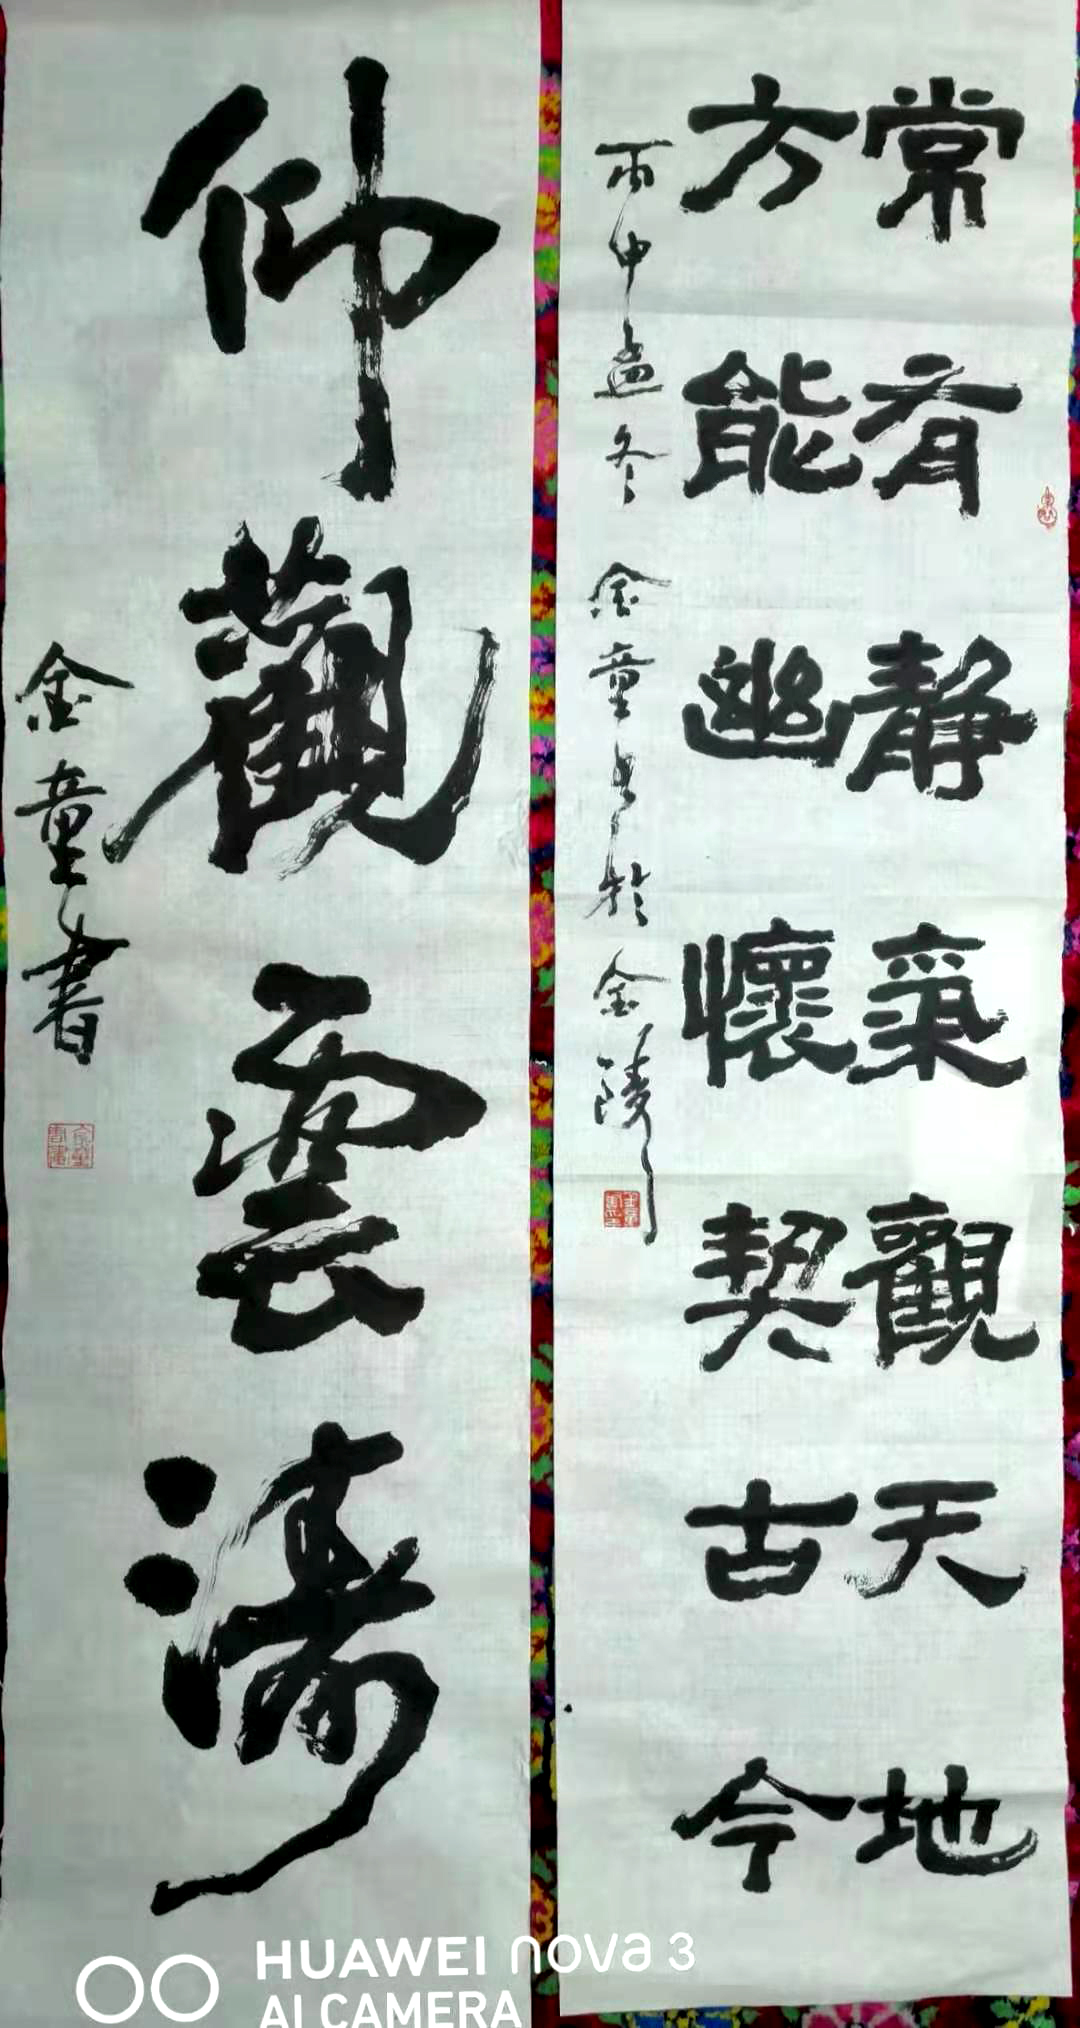 常有静氣觀天地
方能幽懷契古今
丙申孟冬 金童书於金陵
仰觀雲濤
金童書
HUAWEI nova 3
AI CAMERA